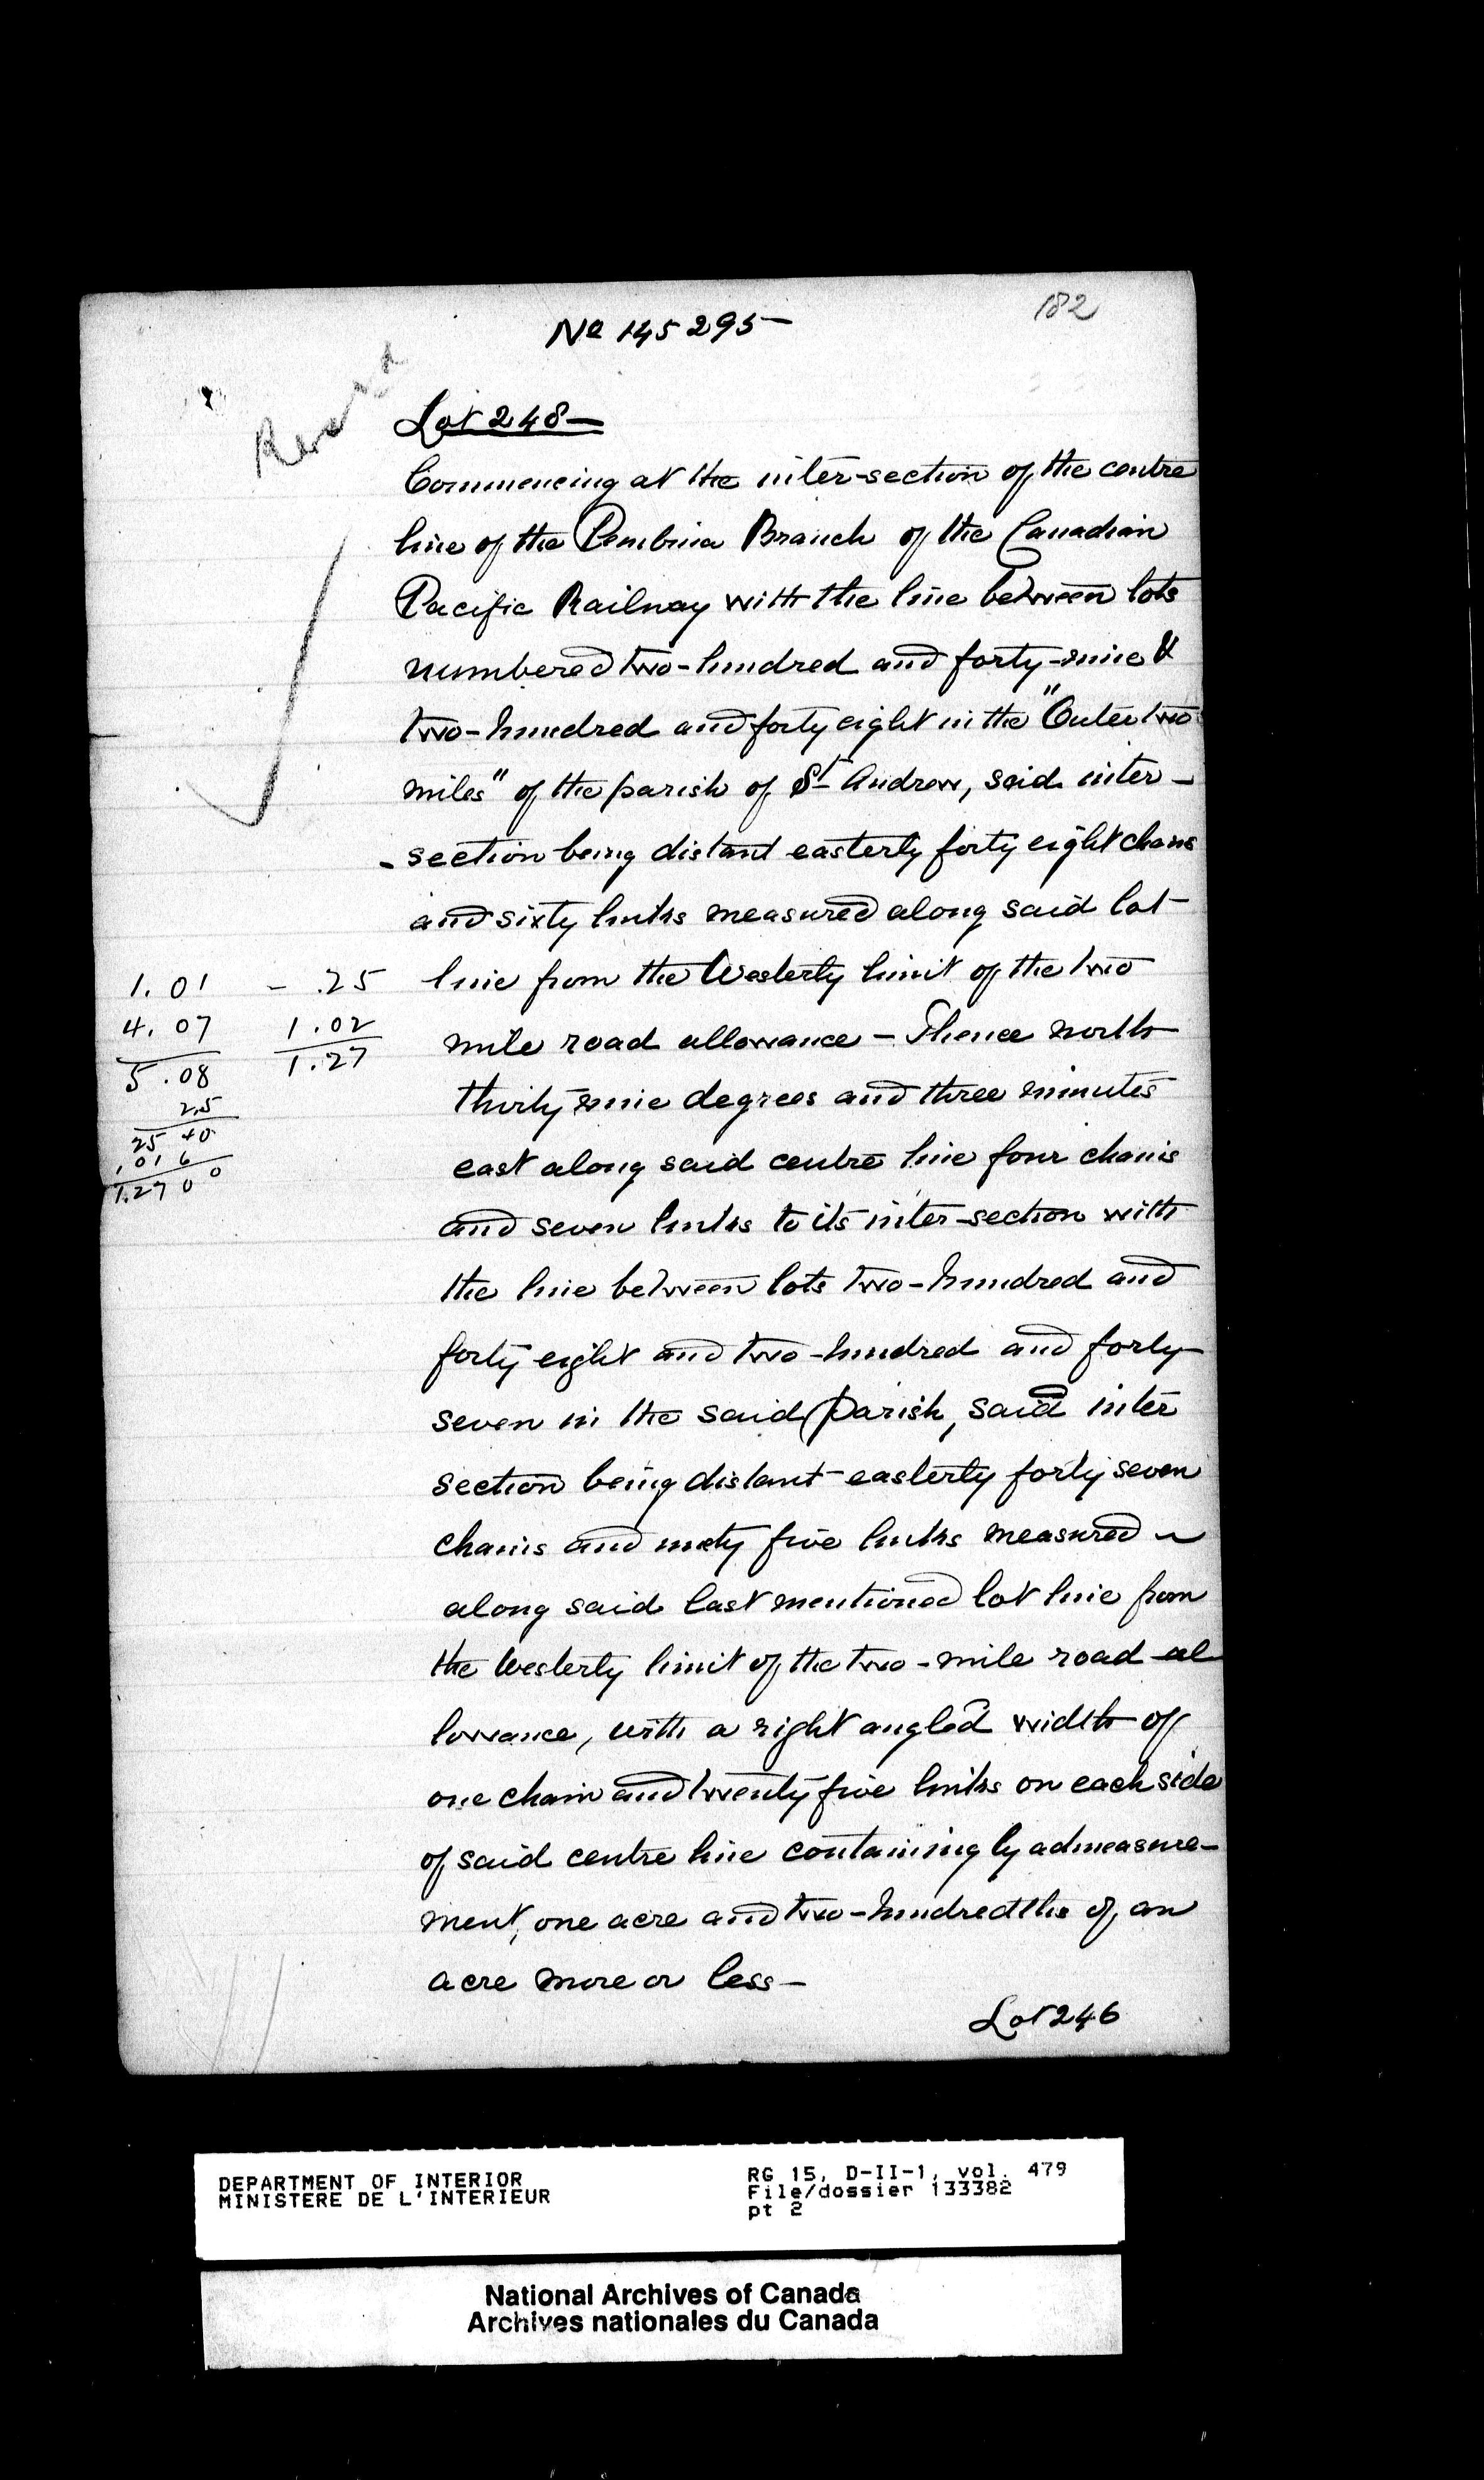 182
No 145295
Lot 248
Commencing at the inter-section of the centre
line of the Pembina Branch of the Canadian
Pacific Railway with the line between lots
numbered two-hundred and forty-nine &
two-hundred and forty eight in the "Outer two
miles" of the parish of St Andrew, said inter-
-section being distant easterly forty eight chains
and sixty links measured along said lot
line from the Westerly limit of the two
mile road allowance - Thence north
thirty nine degrees and three minutes
east along said centre line four chains
and seven links to its inter-section with
the line between lots two-hundred and
forty eight and two-hundred and forty
seven in the said Parish, said inter
section being distant easterly forty seven
chains and ninety five links measured
along said last mentioned lot line from
the Westerly limit of the two-mile road al
lowance, with a right angled width of
one chain and twenty five links on each side
of said centre line containing by admeasure-
ment, one acre and two-hundredths of an
acre more or less-
Lot 246
1.01 - .25
4.07 1.02
5.08 1.27
2.5
25 40
1.01 6
1.27 0 0
DEPARTMENT OF INTERIOR
MINISTERE DE L'INTERIEUR
RG 15, D-II-1, vol. 479
File/dossier 133382
pt 2
National Archives of Canada
Archives nationales du Canada